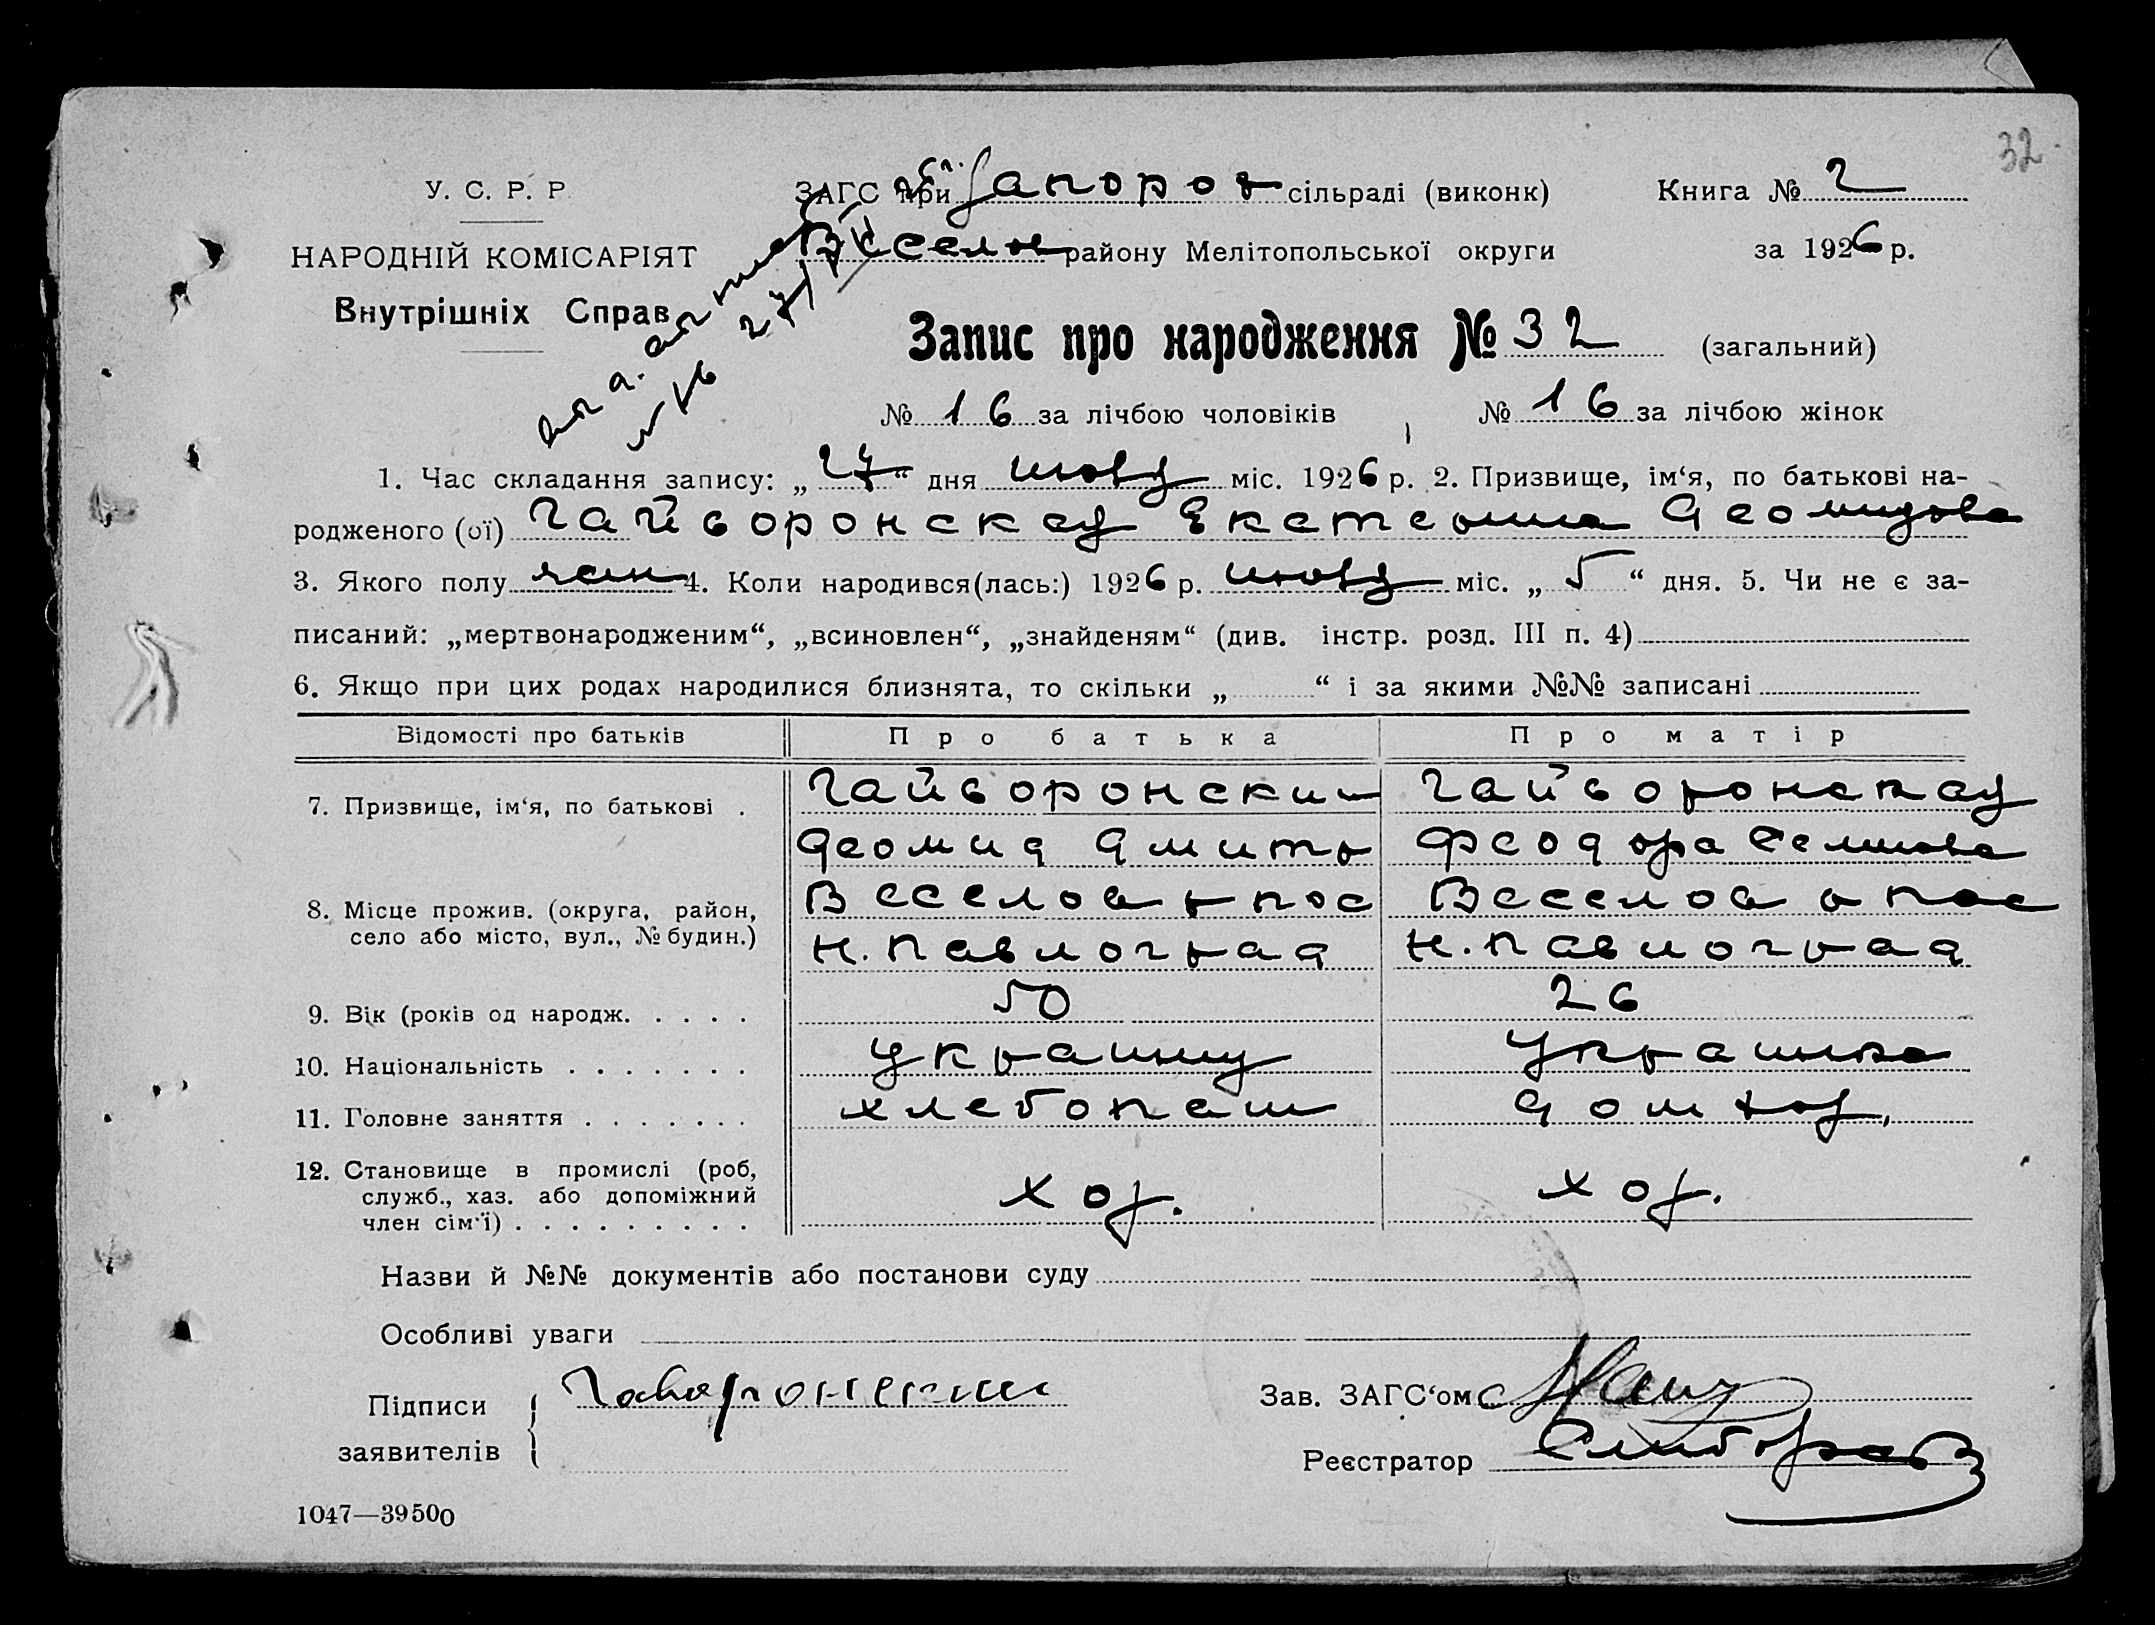 32
У. С. Р. Р
ЗАГС при Запорож сільраді (виконк)
Книга № 2
НАРОДНІЙ КОМІСАРІЯТ
Весело району Мелітопольської округи
за 1926 р.
Внутрішніх Справ
Запис про народження № 32 (загальний)
№ 16 за лічбою чоловіків № 16 за лічбою жінок
1. Час складання запису: „27“ дня июля міс. 1926 р. 2. Призвище, ім‘я, по батькові на-
родженого (ої) Гайворонская Екатерина Деомидова
3. Якого полу жен 4. Коли народився(лась:) 1926 р. июля міс. „5“ дня. 5. Чи не є за-
писаний: „мертвонародженим“, „всиновлен“, „знайденям“ (див. інстр. розд. III п. 4)
6. Якщо при цих родах народилися близнята, то скільки „ “ і за якими №№ записані
Відомості про батьків Про батька Про матір
7. Призвище, ім‘я, по батькові . Гайворонский Гайворонская
Деомид Дмитр Феодора Семинова
8. Місце прожив. (округа, район, Веселов рпос Веселов пос
село або місто, вул., № будин.) Н. Павлоград Н. Павлоград
9. Вік (років од народж. . . . . 50 26
10. Національність . . . . . . . Украинц Украинка
11. Головне заняття . . . . . . . хлебопаш дом хоз.
12. Становище в промислі (роб,
служб., хаз. або допоміжний хоз. хоз.
член сім‘ї) . . . . . . . . .
Назви й №№ документів або постанови суду
Особливі уваги
Підписи
заявителів
Гаворонский
Зав. ЗАГС‘ом
Реєстратор
1047—39500